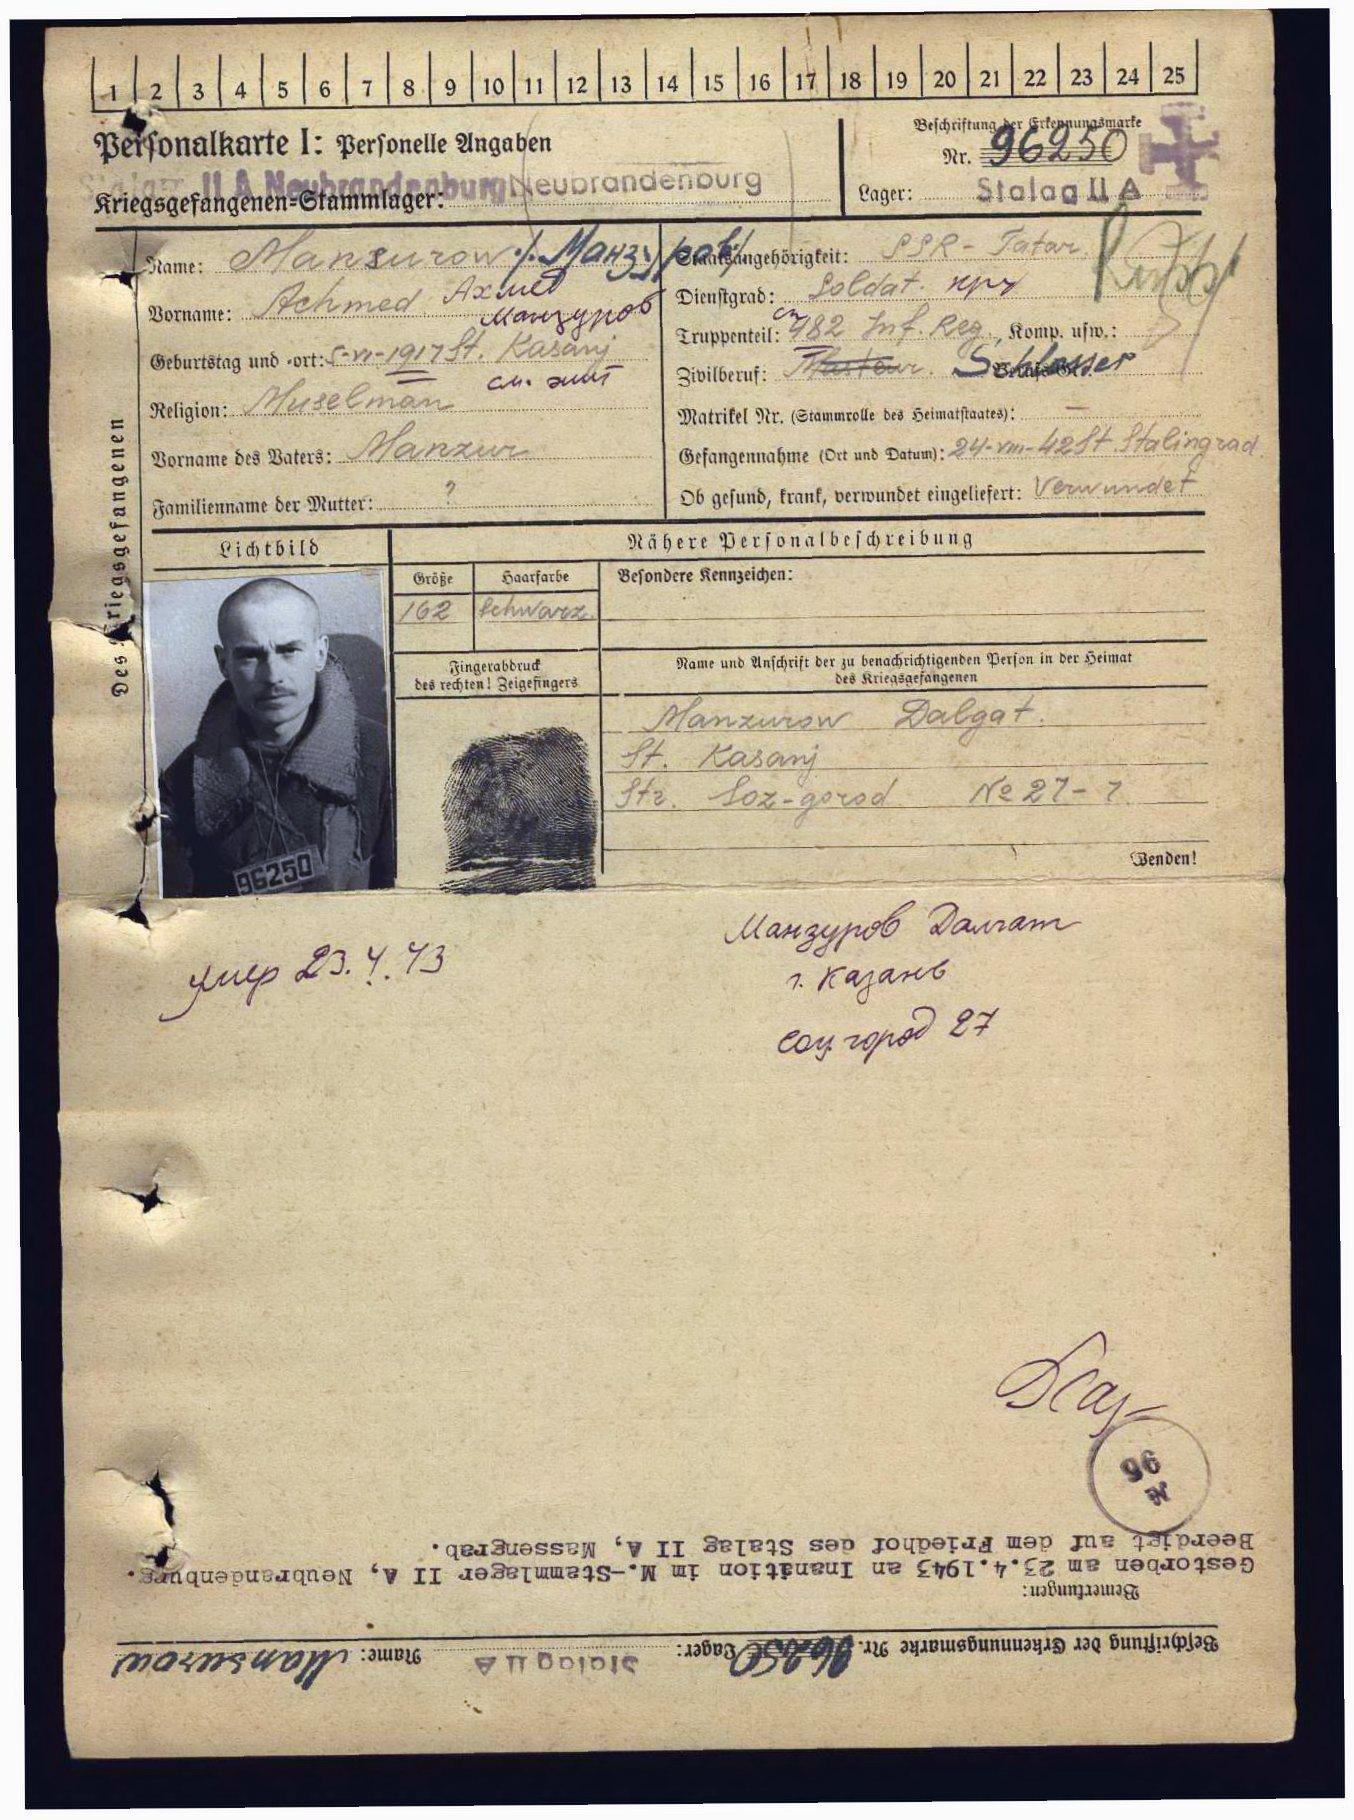 1 2 3 4 5 6 7 8 9 10 11 12 13 14 15 16 17 18 19 20 21 22 23 24 25
Personalkarte I: Personelle Angaben
Beschriftung der Erkennungsmarke
Nr. 96250
Stalag II A Neubrandenburg Neubrandenburg
Kriegsgefangenen-Stammlager:
Lager: Stalag II A
Des Kriegsgefangenen
Name: Mansurow /Манзуров/
Vorname: Achmed Ахмед
Манзуров
Geburtstag und -ort: 5-VI-1917 St. Kasanj
Religion: Muselman
Vorname des Vaters: Manzur
Familienname der Mutter: ?
Staatsangehörigkeit: SSR - Tatar
Dienstgrad: Soldat. кр
Truppenteil: 482 Inf. Reg., Komp. usw.:
Zivilberuf: Schlosser
Matrikel Nr. (Stammrolle des Heimatstaates): —
Gefangennahme (Ort und Datum): 24-VIII-42 St. Stalingrad.
Ob gesund, krank, verwundet eingeliefert: Verwundet
Lichtbild
Nähere Personalbeschreibung
Größe
Haarfarbe
Besondere Kennzeichen:
162
schwarz.
Fingerabdruck
des rechten! Zeigefingers
Name und Anschrift der zu benachrichtigenden Person in der Heimat
des Kriegsgefangenen
Manzurow Dalgat.
St. Kasanj
Str. Soz-gorod № 27-7
Wenden!
96250
Манзуров Далгат
г. Казань
соц. город 27
умер 23.4.43
96
N
Beschriftung der Erkennungsmarke Nr. 96250 Lager: Stalag II A Name: Mansurow
Bemerkungen:
Gestorben am 23.4.1943 an Inanition im M.-Stammlager II A, Neubrandenburg.
Beerdigt auf dem Friedhof des Stalag II A, Massengrab.